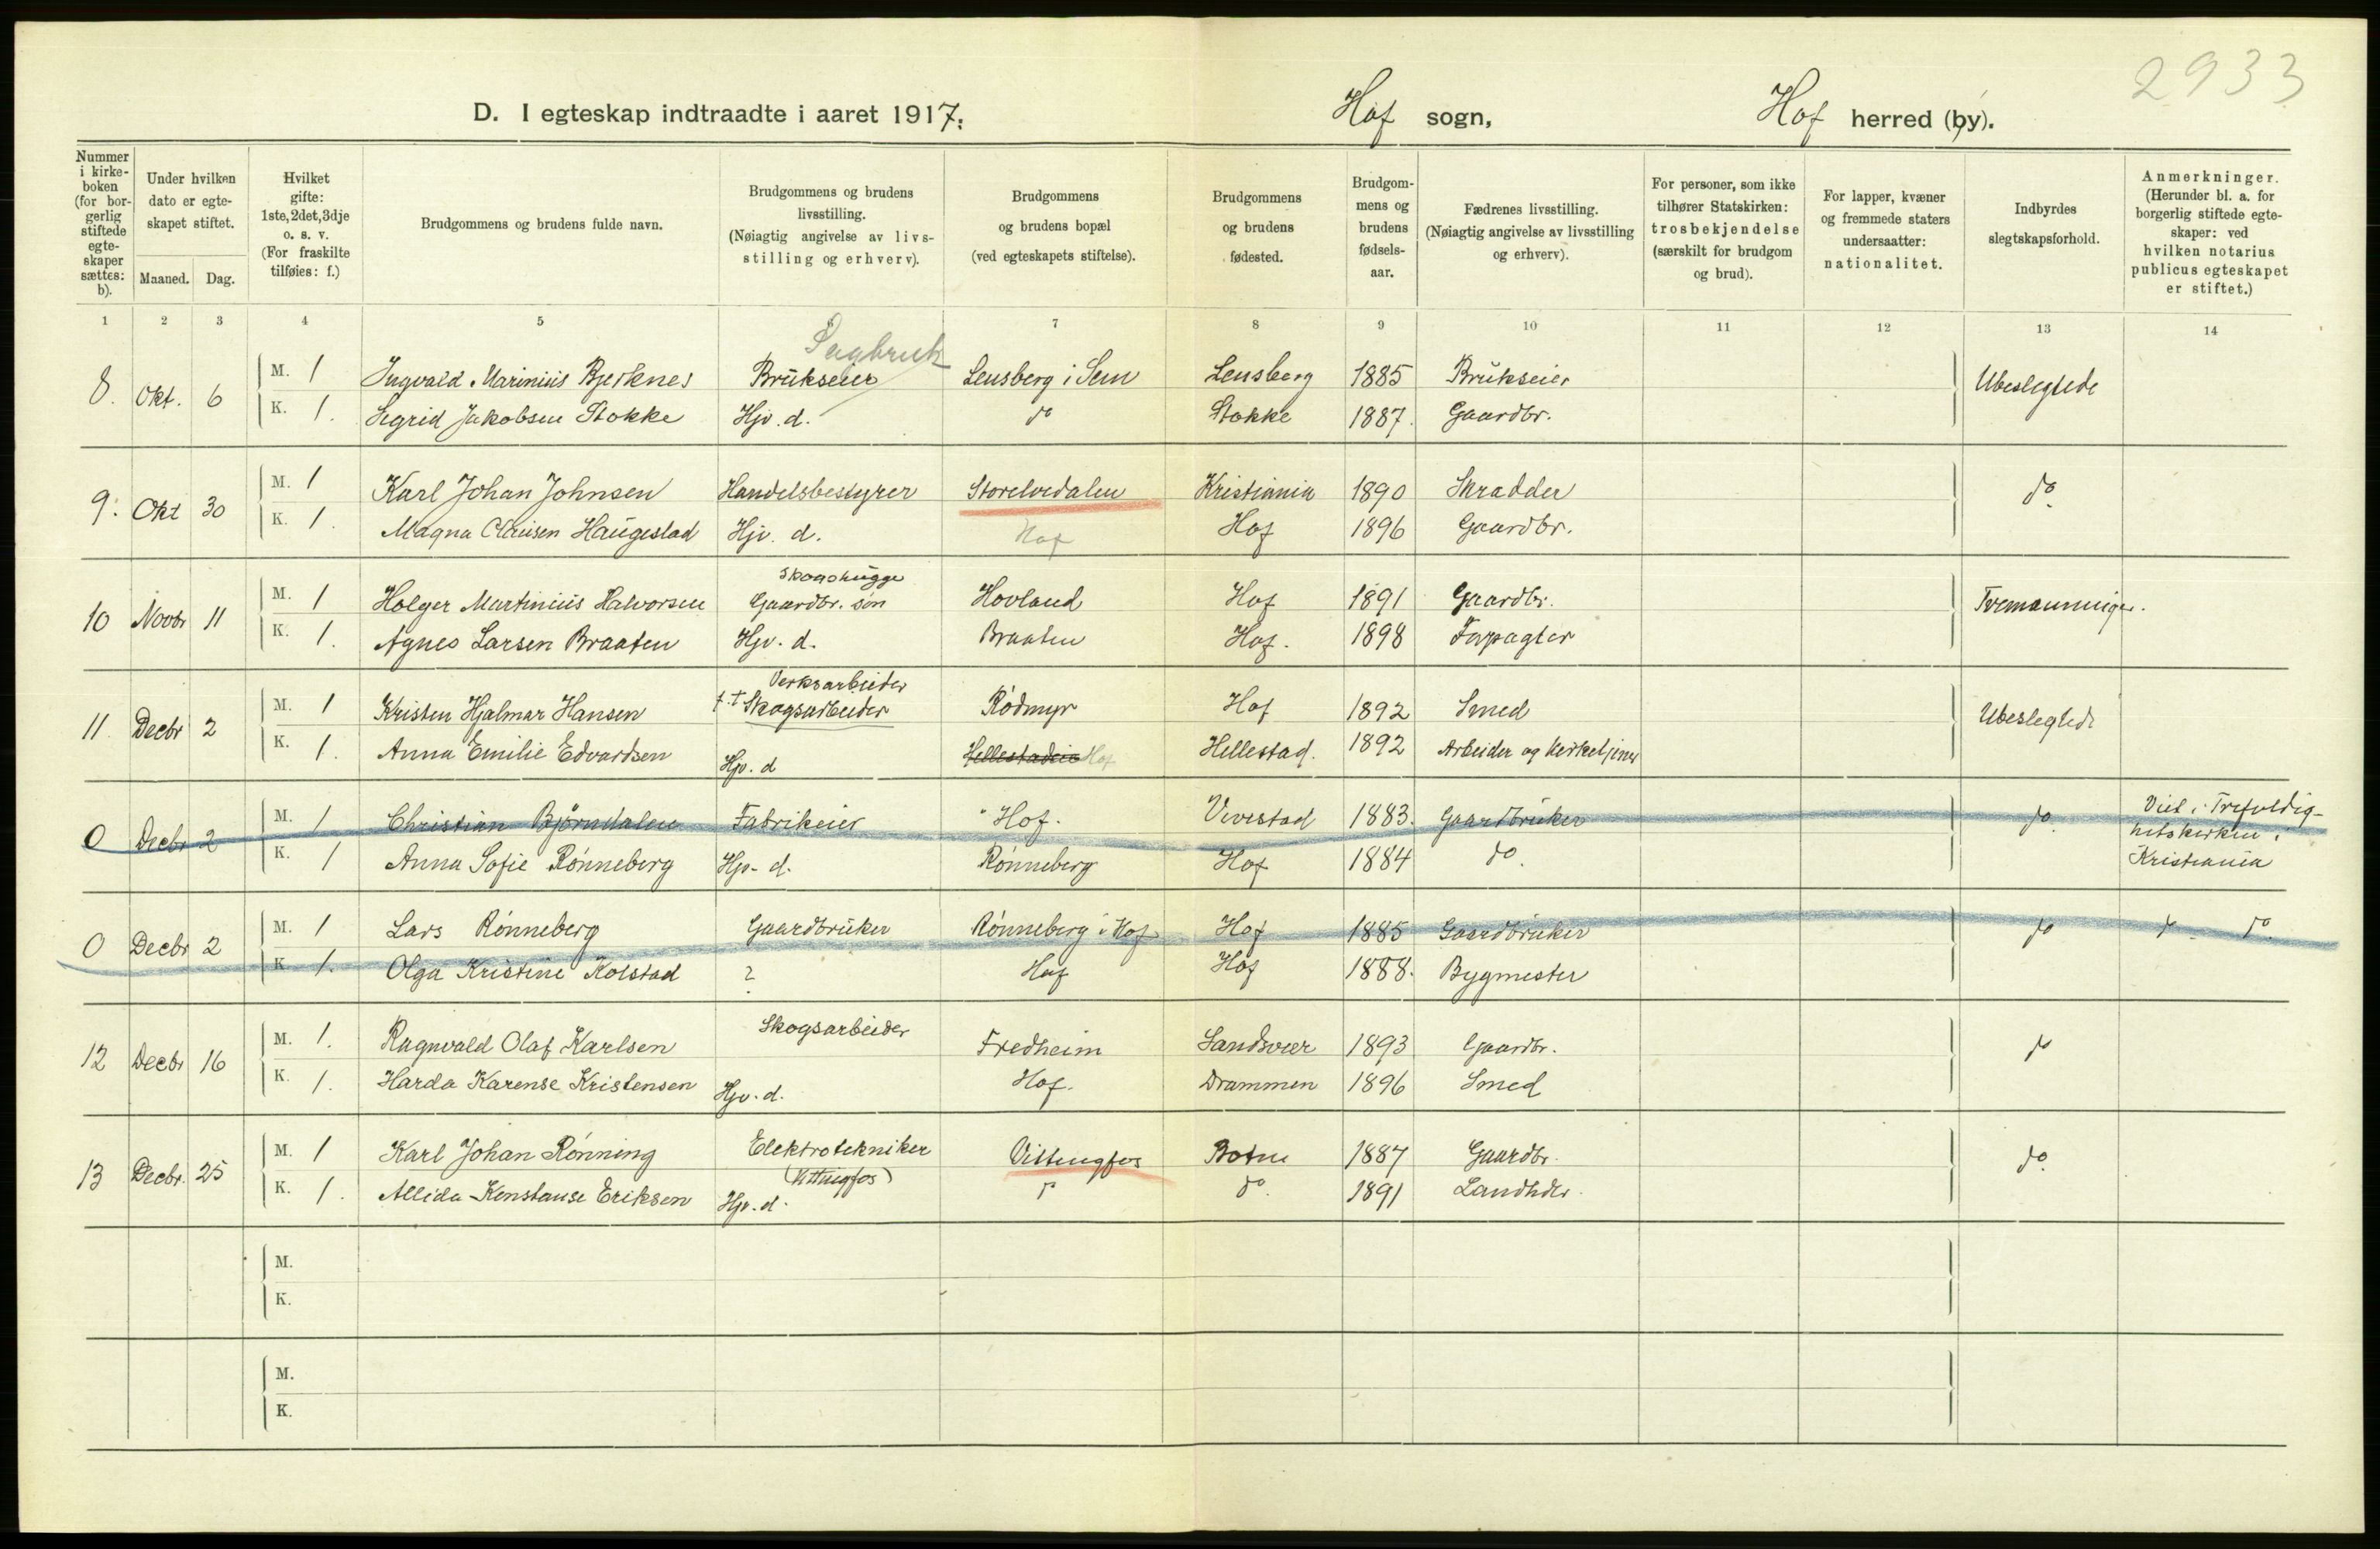 2933
D. I egteskap indtraadte i aaret 1917. Hof sogn, Hof herred (by).
Nummer i kirkeboken (for borgerlig stiftede egteskaper sættes: b).
Under hvilken dato er egteskapet stiftet.
Maaned. Dag.
Hvilket gifte: 1ste, 2det, 3dje o. s. v. (For fraskilte tilføies: f.)
Brudgommens og brudens fulde navn.
Brudgommens og brudens livsstilling. (Nøiagtig angivelse av livsstilling og erhverv).
Brudgommens og brudens bopæl (ved egteskapets stiftelse).
Brudgommens og brudens fødested.
Brudgommens og brudens fødselsaar.
Fædrenes livsstilling. (Nøiagtig angivelse av livsstilling og erhverv).
For personer, som ikke tilhører Statskirken: trosbekjendelse (særskilt for brudgom og brud).
For lapper, kvæner og fremmede staters undersaatter: nationalitet.
Indbyrdes slegtskapsforhold.
Anmerkninger. (Herunder bl. a. for borgerlig stiftede egteskaper: ved hvilken notarius publicus egteskapet er stiftet.)
1 2 3 4 5 6 7 8 9 10 11 12 13 14
Sagbruk
8. Okt. 6 M. 1 Ingvald Marinius Bjerknes Brukseier Lensberg i Sem Lensberg 1885 Brukseier Ubeslegtede
K. 1. Sigrid Jakobsen Stokke Hjv. d. do Stokke 1887. Gaardbr.
9. Okt 30 M. 1 Karl Johan Johnsen Handelsbestyrer Storelvedalen Kristiania 1890 Skradder do.
K. 1. Magna Clausen Haugestad Hjv. d. Hof Hof 1896 Gaardbr.
Skogshugge
10 Novbr 11 M. 1 Holger Martinius Halvorsen Gaardbr. søn Hovland Hof 1891 Gaardbr. Tremenninger.
K. 1. Agnes Larsen Braaten Hjv. d. Braaten Hof. 1898 Forpagter
Verksarbeider
11. Decbr 2 M. 1 Kristen Hjalmar Hansen f.t Skogsarbeider Rödmyr Hof 1892 Smed Ubeslegtede
K. 1. Anna Emilie Edvardsen Hjv. d Hellestadeie Hof Hellestad. 1892 Arbeider og Kirketjener
0 Decbr 2 M. 1 Christian Bjørndalen Fabrikeier Hof. Vivestad 1883. Gaardbruker do. Viet i Trefoldighetskirken i Kristiania
K. 1 Anna Sofie Rønneberg Hjv. d. Rønneberg Hof 1884 do.
0 Decbr 2 M. 1 Lars Rønneberg Gaardbruker Rønneberg i Hof Hof 1885 Gaardbruker do do. do.
K. 1. Olga Kristine Kolstad ? Hof Hof 1888. Bygmester
12 Decbr 16 M. 1. Ragnvald Olaf Karlsen Skogsarbeider Fredheim Sandsvær 1893 Gaardbr. do
K. 1. Harda Karense Kristensen Hjv. d. Hof. Drammen 1896 Smed
13 Decbr. 25 M. 1 Karl Johan Rønning Elektrotekniker (Vittingfos) Vittingfos Botne 1887 Gaardbr. do.
K. 1. Allida Konstanse Eriksen Hjv. d. do do. 1891 Landhdlr.
M.
K.
M.
K.